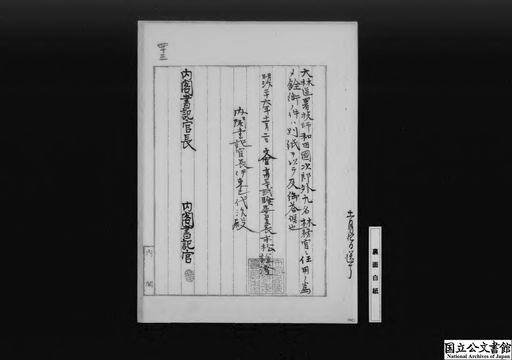 大林區署技師和田國次郎外九名林務官ニ任用ノ為
メ銓衡ノ件ハ別紙ヲ以テ及御答候也
明治二十六年十一月二日 文官高等試験委員長末松謙澄
内閣書記官長伊東巳代治殿
内閣書記官長
内閣書記官
四十三
内閣
裏面白紙
国立公文書館
National Archives of Japan